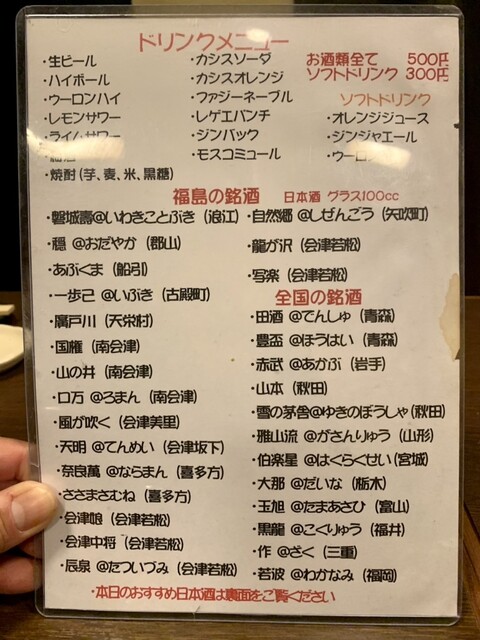 ドリンクメニュー
・生ビール
・ハイボール
・ウーロンハイ
・レモンサワー
・ライムサワー
・焼酎(芋、麦、米、黒糖)
・カシスソーダ
・カシスオレンジ
・ファジーネーブル
・レゲエパンチ
・ジンバック
・モスコミュール
お酒類全て 500円
ソフトドリンク 300円
ソフトドリンク
・オレンジジュース
・ジンジャエール
・ウーロン
福島の銘酒 日本酒 グラス100cc
・磐城壽@いわきことぶき(浪江)
・穏 @おだやか (郡山)
・あぶくま (船引)
・一歩己 @いぶき (古殿町)
・廣戸川 (天栄村)
・国権 (南会津)
・山の井 (南会津)
・口万 @ろまん (南会津)
・風が吹く (会津美里)
・天明 @てんめい (会津坂下)
・奈良萬 @ならまん (喜多方)
・ささまさむね (喜多方)
・会津娘 (会津若松)
・会津中将 (会津若松)
・辰泉 @たついづみ (会津若松)
・自然郷 @しぜんごう (矢吹町)
・龍が沢 (会津若松)
・写楽 (会津若松)
全国の銘酒
・田酒 @でんしゅ (青森)
・豊盃 @ほうはい (青森)
・赤武 @あかぶ (岩手)
・山本 (秋田)
・雪の茅舎@ゆきのぼうしゃ(秋田)
・雅山流 @がさんりゅう (山形)
・伯楽星 @はくらくせい(宮城)
・大那 @だいな (栃木)
・玉旭 @たまあさひ (富山)
・黒龍 @こくりゅう (福井)
・作 @ざく (三重)
・若波 @わかなみ (福岡)
・本日のおすすめ日本酒は裏面をご覧ください